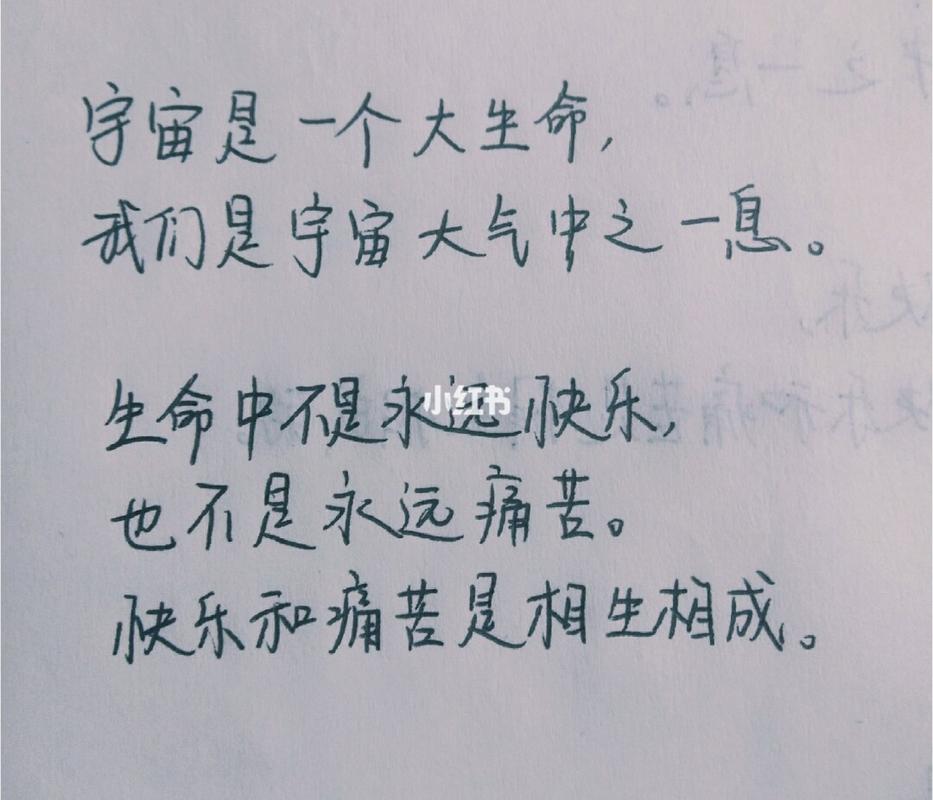 宇宙是一个大生命,
我们是宇宙大气中之一息。
生命中不是永远快乐,
小红书
也不是永远痛苦。
快乐和痛苦是相生相成。